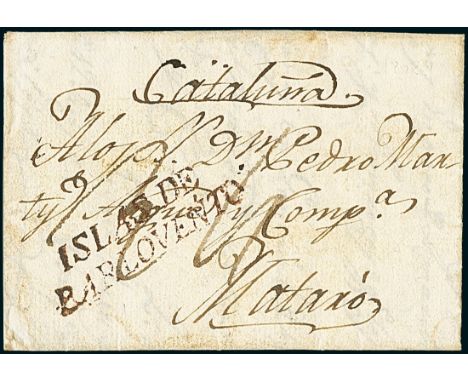 Cataluña.
A los S.res D.n Pedro Mar
ty y Comp.a
ISLAS DE
BARLOVENTO
Mataró